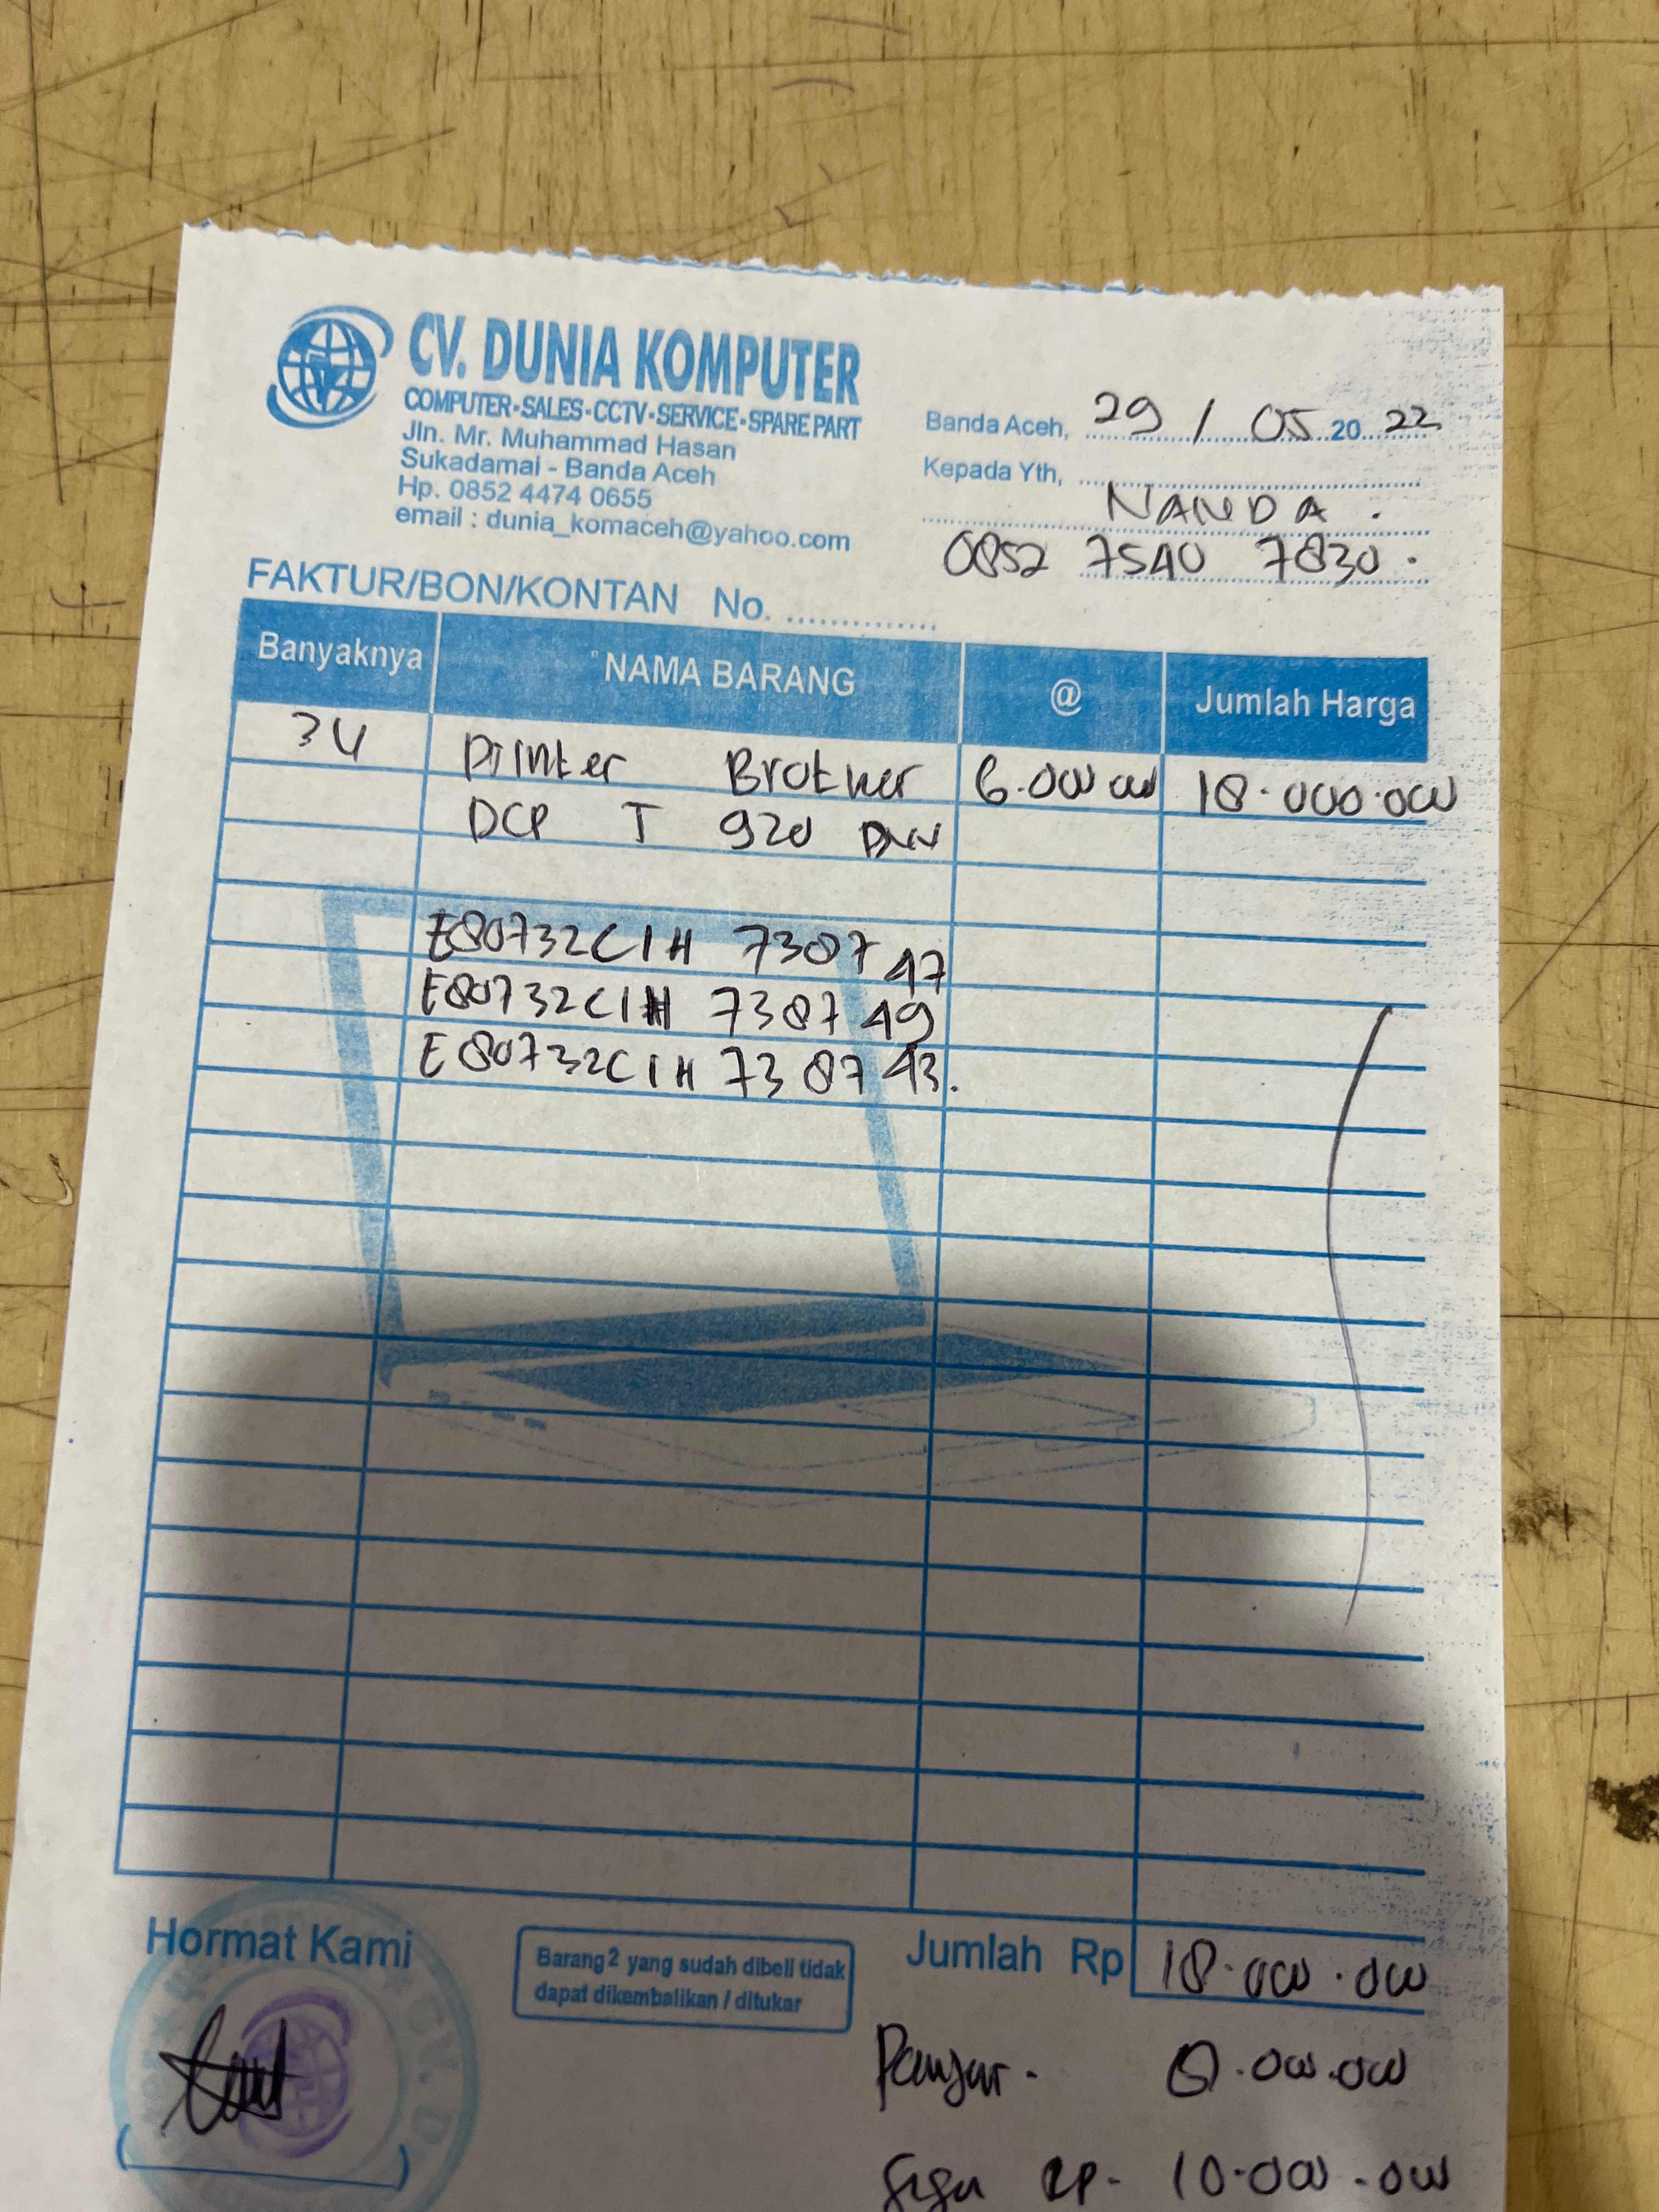 CV. DUNIA KOMPUTER
COMPUTER-SALES-CCTV-SERVICE-SPARE PART
Jln. Mr. Muhammad Hasan
Sukadamai - Banda Aceh
Hp. 0852 4474 0655
email : dunia_komaceh@yahoo.com
Banda Aceh, 29 / 05 20 22
Kepada Yth,
NANDA.
0852 7540 7830.
FAKTUR/BON/KONTAN No.
Banyaknya NAMA BARANG @ Jumlah Harga
3 U Printer Brother 6.000.000 18.000.000
DCP T 920 DW
E80732C1H 7387 47
E80732C1H 7387 49
E80732C1H 7387 43.
Hormat Kami
Barang2 yang sudah dibeli tidak
dapat dikembalikan / ditukar
Jumlah Rp 18.000.000
Panjar. 8.000.000
Sisa Rp. 10.000.000